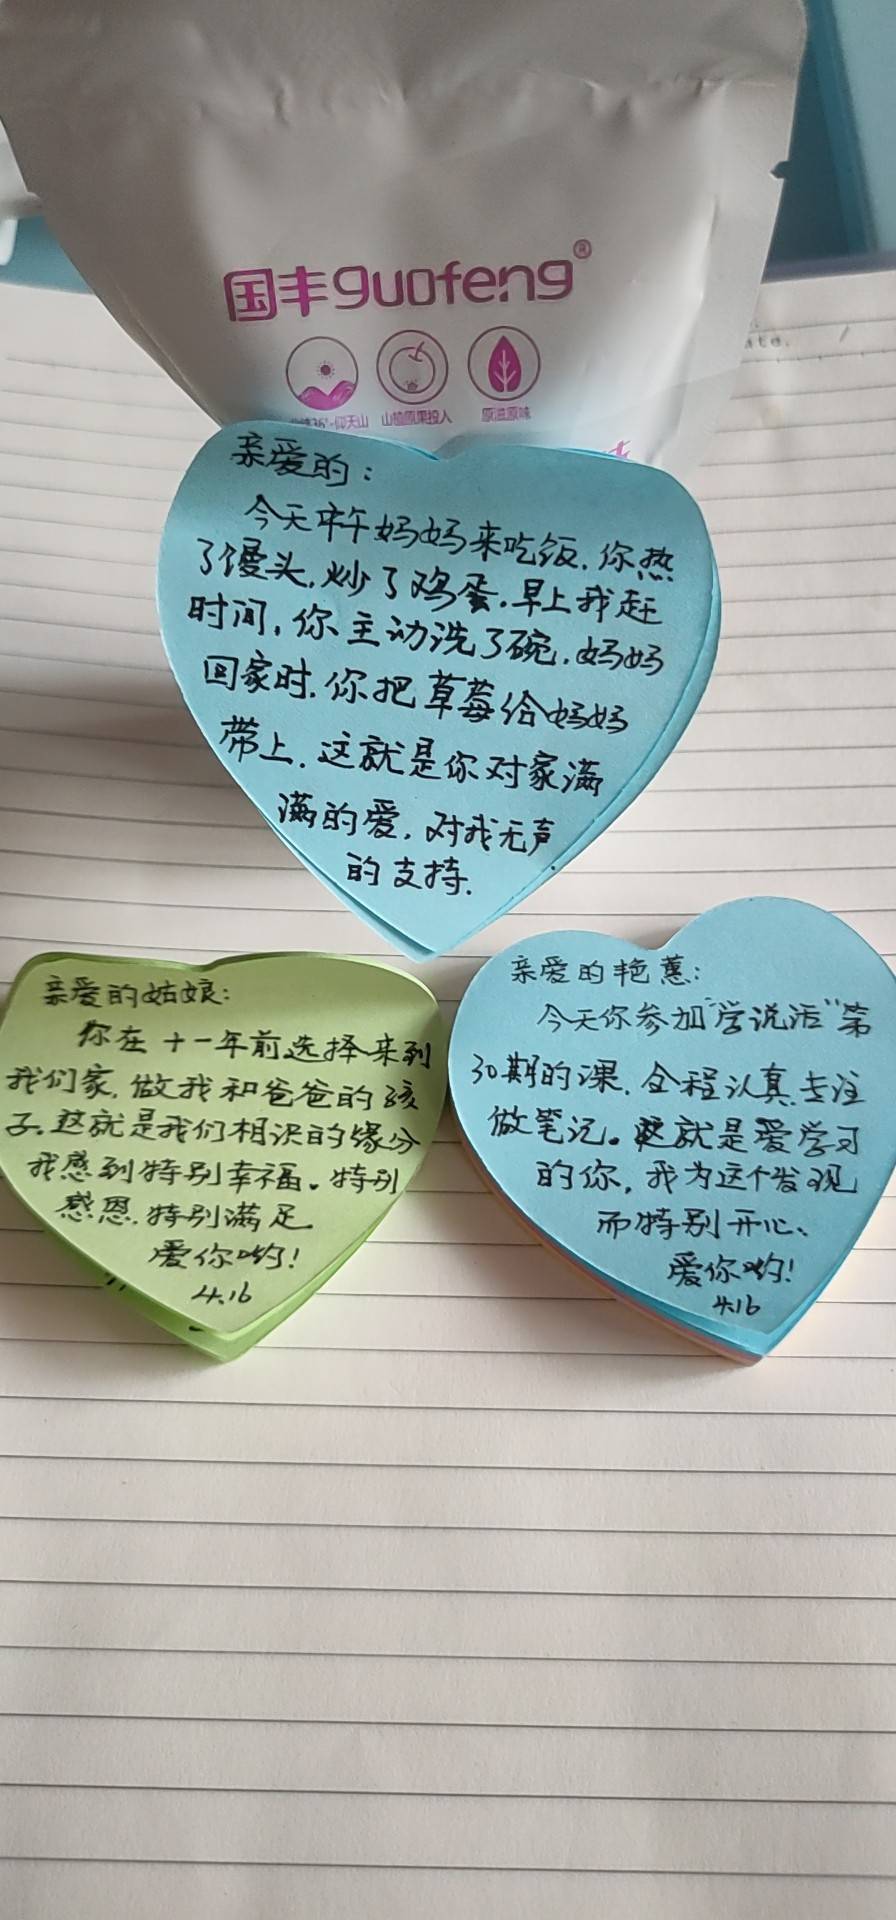 国丰guofeng®
仰天山 山楂原果投入 原滋原味
亲爱的：
今天中午妈妈来吃饭，你热
了馒头，炒了鸡蛋，早上我赶
时间，你主动洗了碗，妈妈
回家时，你把草莓给妈妈
带上，这就是你对家满
满的爱，对我无声
的支持.
亲爱的姑娘：
你在十一年前选择来到
我们家，做我和爸爸的孩
子，这就是我们相识的缘分
我感到特别幸福。特别
感恩，特别满足
爱你哟！
4.16
亲爱的艳蕙：
今天你参加“学说话”第
30期的课，全程认真、专注
做笔记。这就是爱学习
的你，我为这个发现
而特别开心、
爱你哟！
4.16